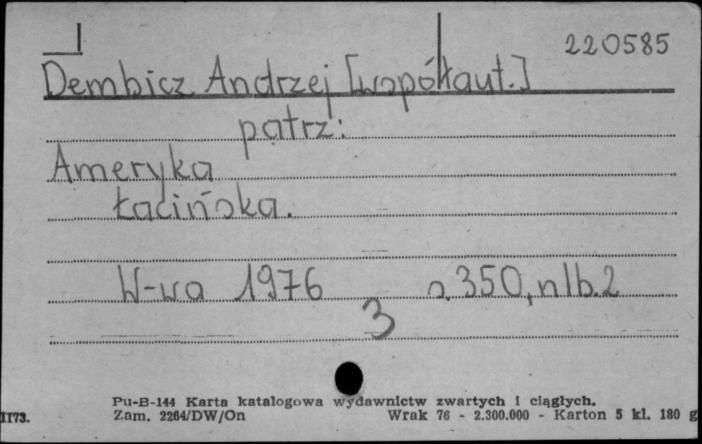 220585
Dembicz Andrzej [współaut.]
patrz:
Ameryka
Łacińska.
W-wa 1976 s. 350, nlb. 2
3
Pu-B-144 Karta katalogowa wydawnictw zwartych i ciągłych.
II73. Zam. 2264/DW/On Wrak 76 - 2.300.000 - Karton 5 kl. 180 g